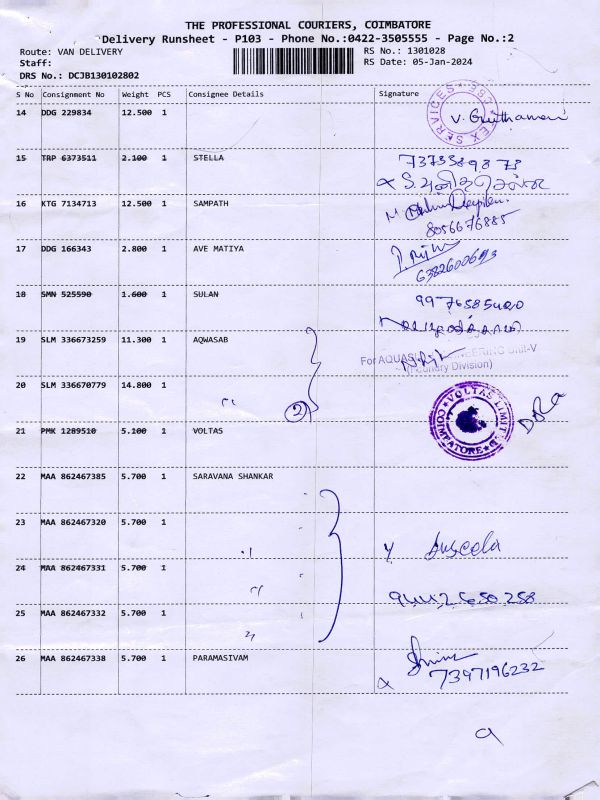 THE PROFESSIONAL COURIERS, COIMBATORE
Delivery Runsheet - P103 - Phone No.:0422-3505555 - Page No.:2
Route: VAN DELIVERY RS No.: 1301028
Staff: RS Date: 05-Jan-2024
DRS No.: DCJB130102802
S No Consignment No Weight PCS Consignee Details Signature
14 DDG 229834 12.500 1
15 TRP 6373511 2.100 1 STELLA
16 KTG 7134713 12.500 1 SAMPATH
8056676885
17 DDG 166343 2.800 1 AVE MATIYA
18 SMN 525590 1.600 1 SULAN
19 SLM 336673259 11.300 1 AQWASAB
20 SLM 336670779 14.800 1
2
21 PMK 1289510 5.100 1 VOLTAS
VOLTAS LIMITED COIMBATORE
22 MAA 862467385 5.700 1 SARAVANA SHANKAR
23 MAA 862467320 5.700 1
Suseela
24 MAA 862467331 5.700 1
25 MAA 862467332 5.700 1
26 MAA 862467338 5.700 1 PARAMASIVAM
7397196232
9